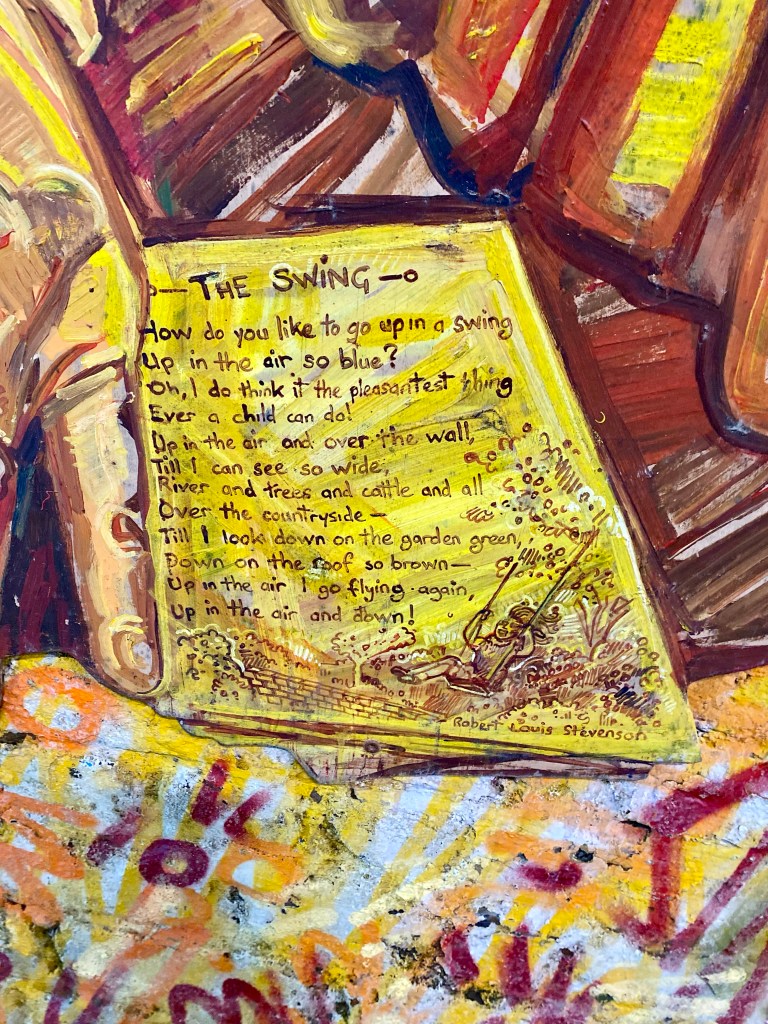 THE SWING
How do you like to go up in a swing
Up in the air so blue?
Oh, I do think it the pleasantest thing
Ever a child can do!
Up in the air and over the wall,
Till I can see so wide,
River and trees and cattle and all
Over the countryside—
Till I look down on the garden green,
Down on the roof so brown—
Up in the air I go flying again,
Up in the air and down!
Robert Louis Stevenson